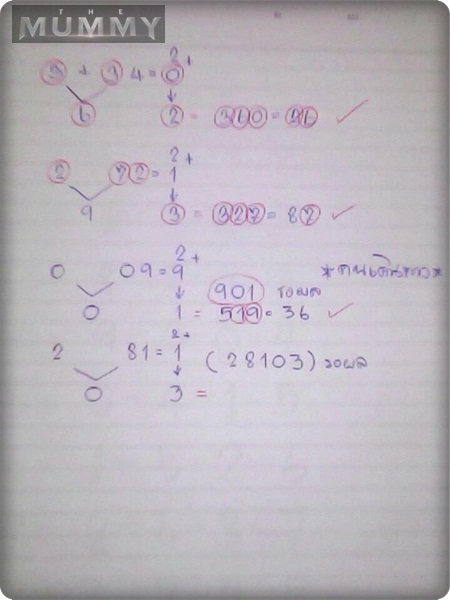 THE
MUMMY
2+
3 + 3 4 = 0
6 2 = 360 = 26 ✓
2+
2 72 = 1
9 3 = 327 = 87 ✓
2+
0 09 = 9 *คนเดินทาง*
901 รอผล
0 1 = 519 = 36 ✓
2+
2 81 = 1 (28103) รอผล
0 3 =